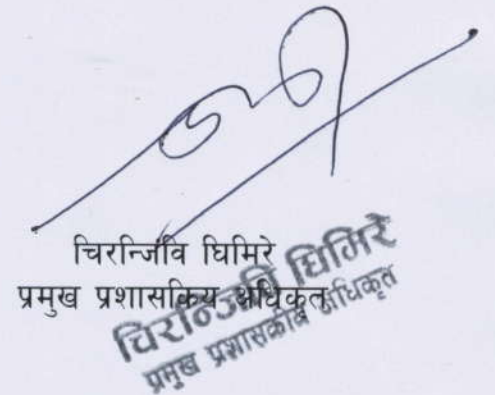 चिरन्जिवि घिमिरे
प्रमुख प्रशासकिय अधिकृत
चिरन्जिवि घिमिरे
प्रमुख प्रशासकीय अधिकृत